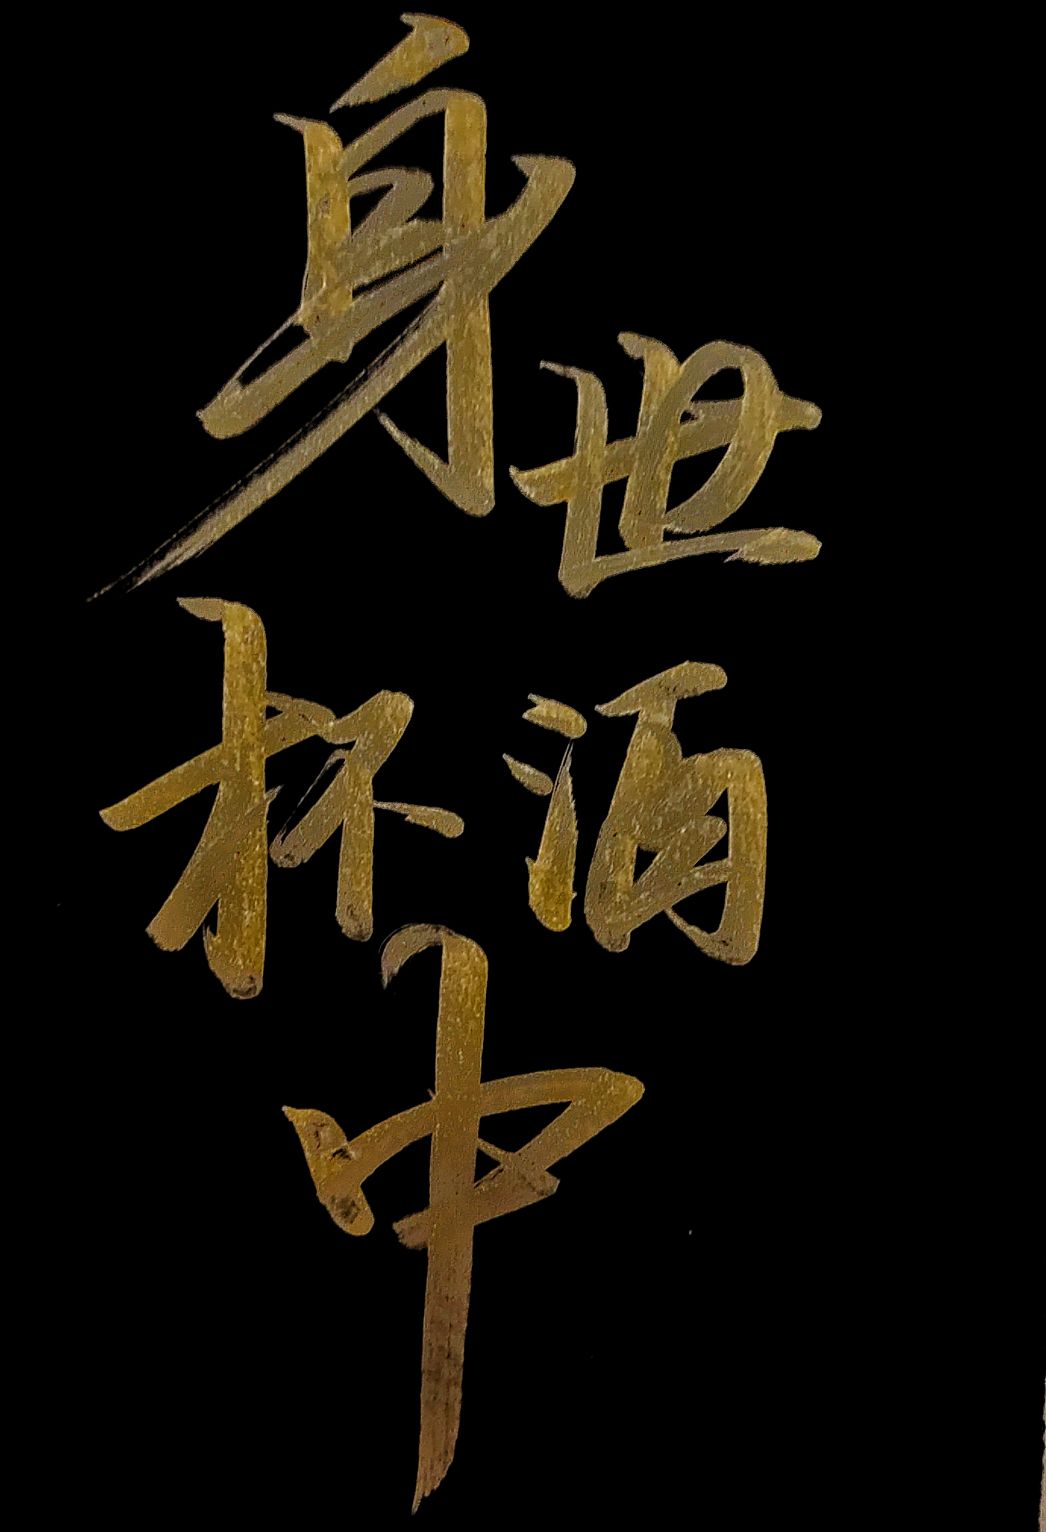 身世
杯酒
中